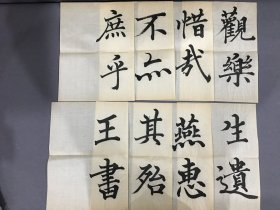 觀樂
惜哉
不亦
庶乎
生遺
燕惠
其殆
王書